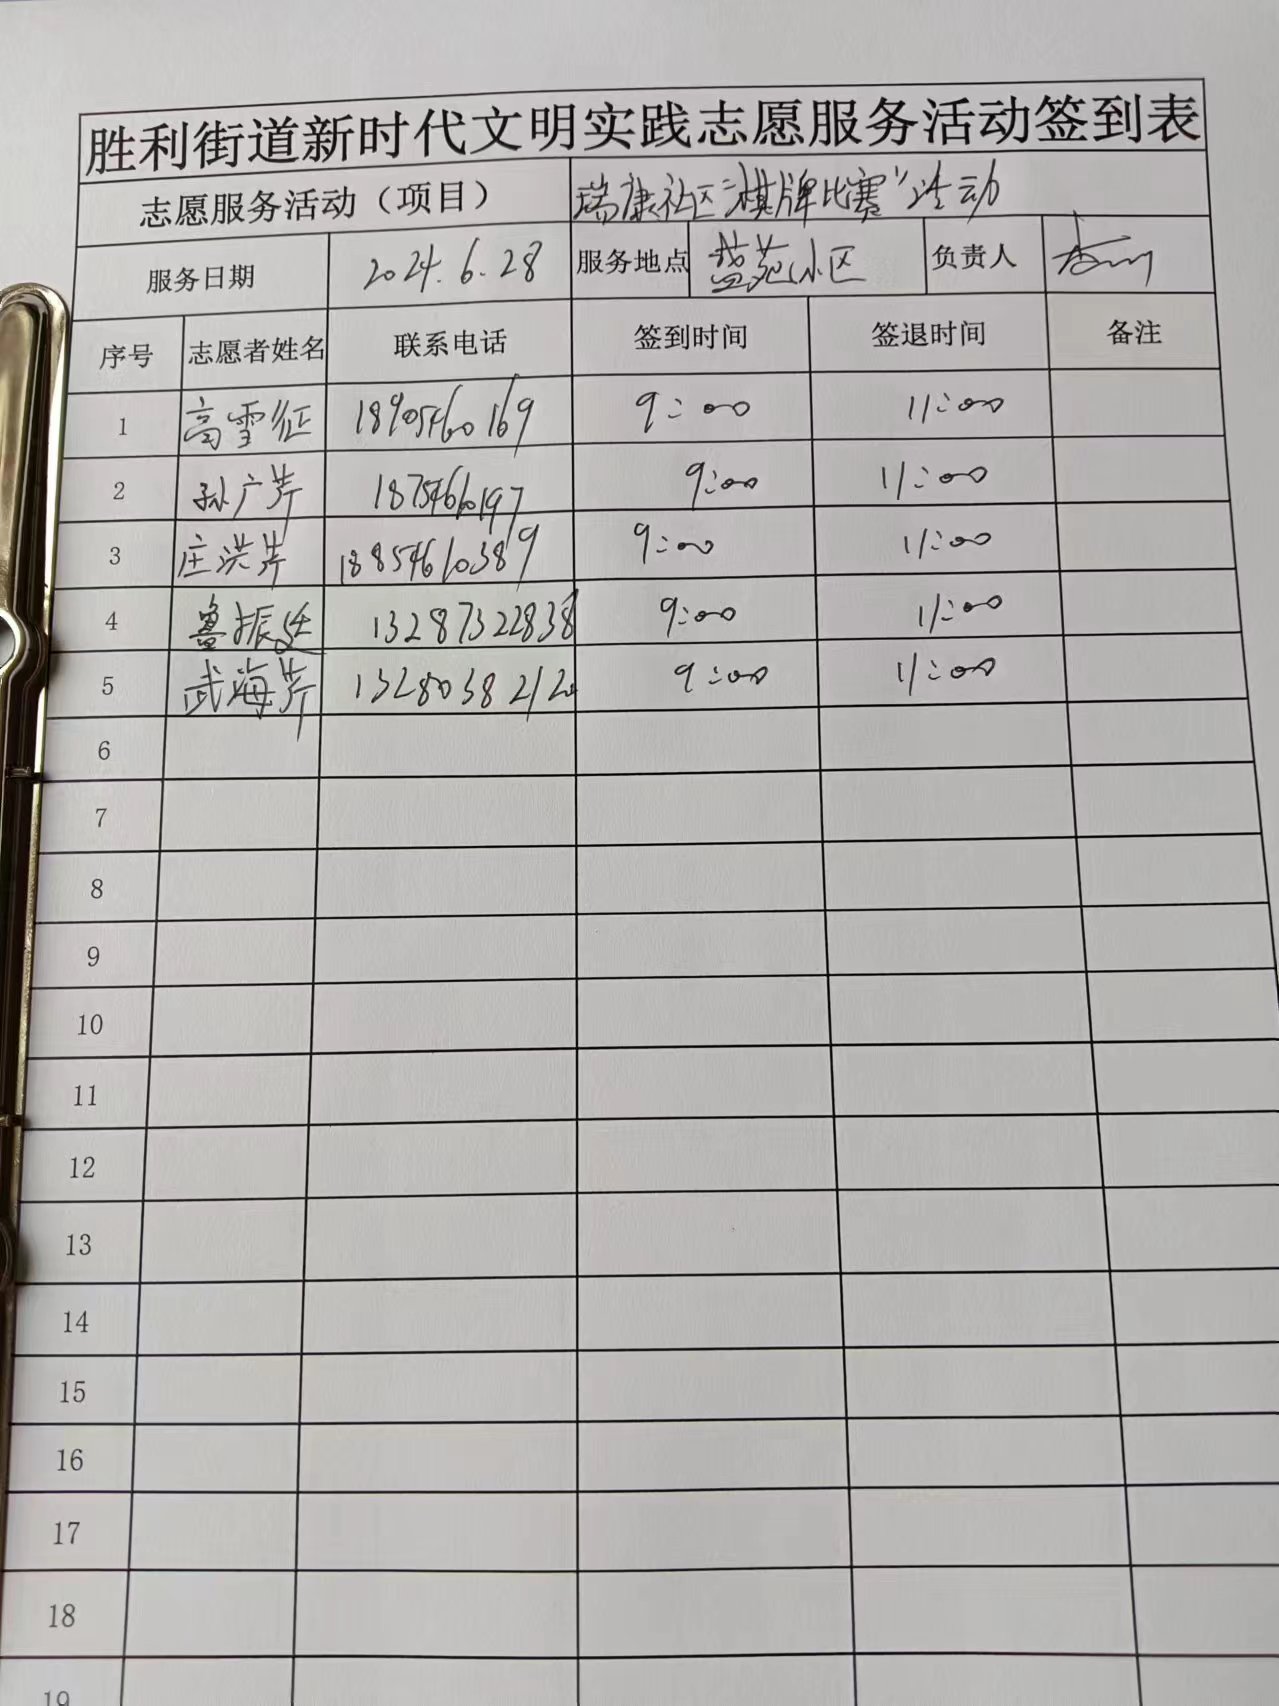 胜利街道新时代文明实践志愿服务活动签到表
志愿服务活动（项目） 瑞康社区“棋牌比赛”活动
服务日期 2024.6.28 服务地点 蓝苑小区 负责人
序号 志愿者姓名 联系电话 签到时间 签退时间 备注
1 高雪征 18905460169 9:00 11:00
2 孙广芹 18754660197 9:00 11:00
3 庄洪芹 18854610389 9:00 11:00
4 鲁振廷 13287322838 9:00 11:00
5 武海芹 13280382120 9:00 11:00
6
7
8
9
10
11
12
13
14
15
16
17
18
19